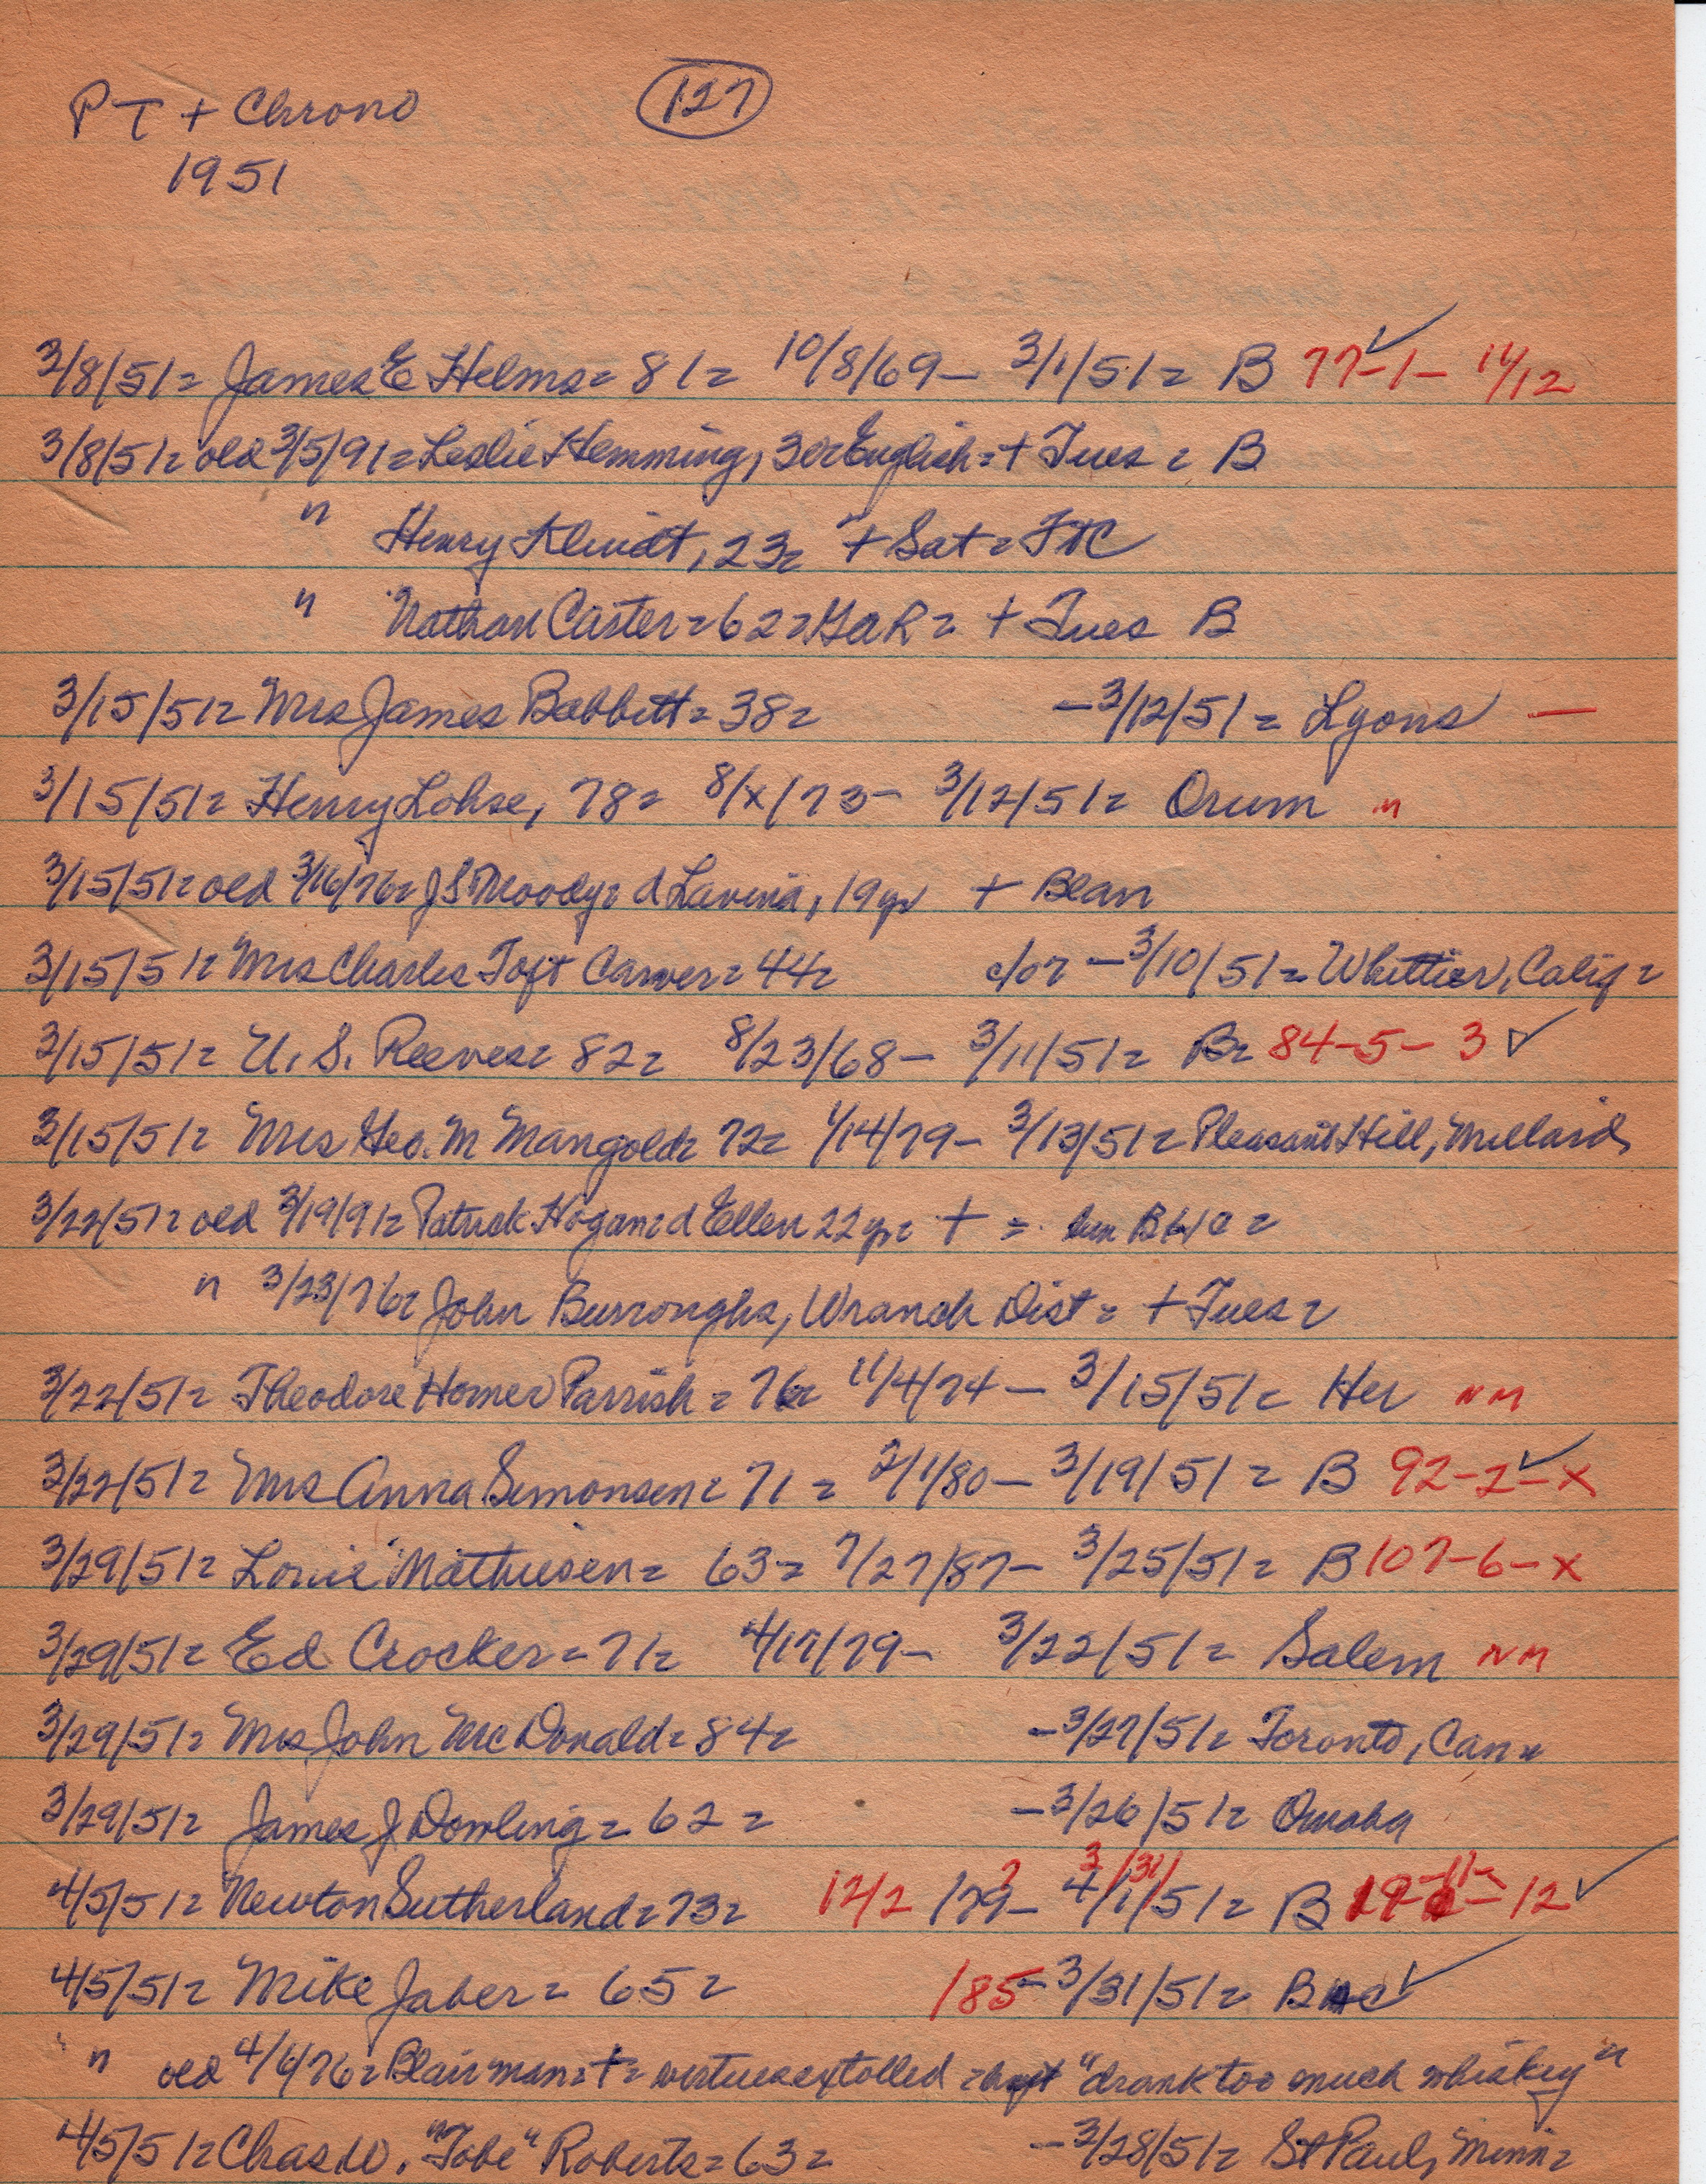 PT + Chrono 127
1951
3/8/51= James E Helms= 81= 10/8/69- 3/1/51= B 77-1- 11/12
3/8/51= old 3/5/91= Leslie Hemming, 30= English=+ Tues = B
" Henry Klindt, 23= + Sat= FtC
" Nathan Carter=62=GaR= + Tues B
3/15/51= Mrs James Babbitt= 38= -3/12/51= Lyons —
3/15/51= Henry Lohse, 78= 8/x/73- 3/12/51= Orum "
3/15/51= old 3/16/76= J S Moody= d Lavina, 19yr + Blair
3/15/51= Mrs Charles Toft Carver= 44= c/o7 -3/10/51= Whittier, Calif=
3/15/51= U. S. Reeves= 82= 8/23/68- 3/11/51= B= 84-5- 3 ✓
3/15/51= Mrs Geo. M Mangold= 72= 1/14/79- 3/13/51= Pleasant Hill, Millard
3/22/51= old 3/19/91= Patrick Hogan= d Ellen 22yr= + = B
" 3/23/76= John Burroughs, Wranch Dist= + Tues=
3/22/51= Theodore Homer Parrish= 76= 11/4/74- 3/15/51= Her NM
3/22/51= Mrs Anna Simonsen= 71= 2/1/80- 3/19/51= B 92-2-x
3/29/51= Louie Mathiesen= 63= 7/27/87- 3/25/51= B 107-6-x
3/29/51= Ed Crocker= 71= 4/17/79- 3/22/51= Salem NM
3/29/51= Mrs John McDonald= 84= -3/27/51= Toronto, Can
3/29/51= James J Dowling= 62= -3/26/51= Omaha
4/5/51= Newton Sutherland= 73= 12/2 /79- 4/1/51= B 12 ✓
4/5/51= Mike Jaber= 65= /85- 3/31/51= B ✓
" old 4/6/76= Blair man=+= virtues extolled = but "drank too much whiskey"
4/5/51= Chas W. "Tobe" Roberts= 63= -3/28/51= St Paul, Minn=